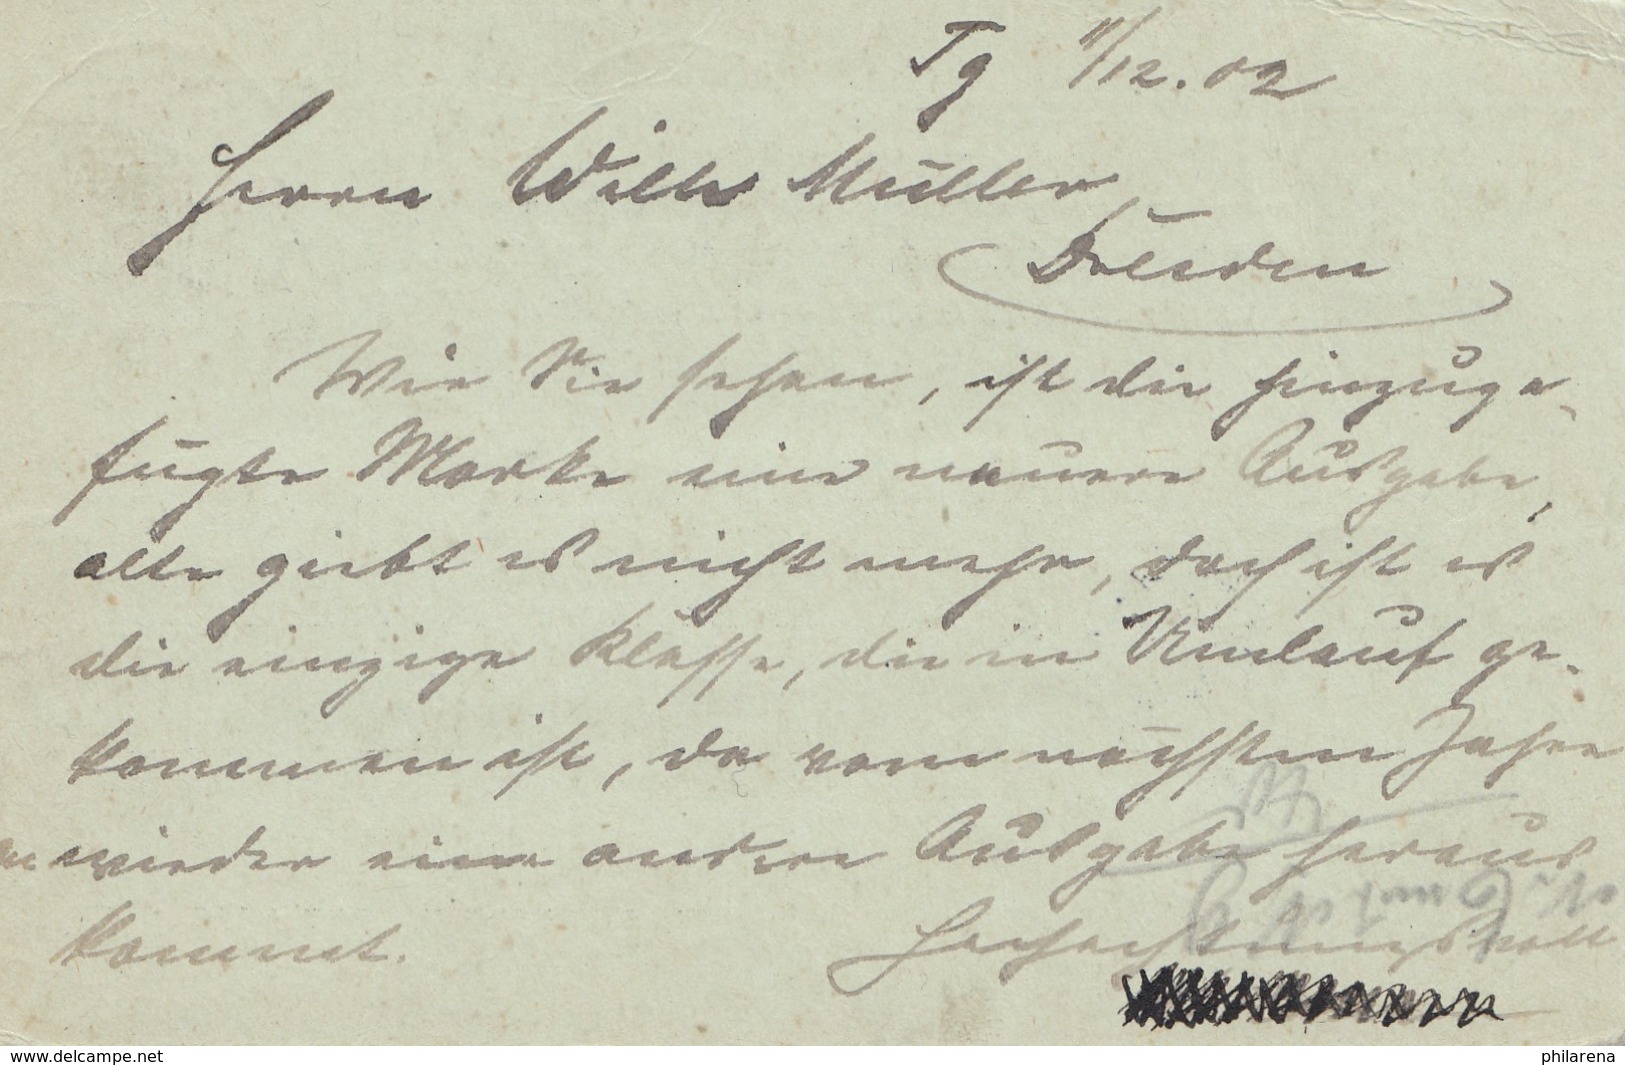 Tg 11/12.02
Herrn Wilh Müller,
Dresden
Wie Sie sehen, ist die hinzuge-
fügte Marke eine neuere Ausgabe,
alte giebt es nicht mehr, doch ist es
die einzige Klasse, die in Umlauf ge-
kommen ist, da vom nächsten Jahre
an wieder eine andere Ausgabe heraus
kommt.
Hochachtungsvoll
www.delcampe.net
philarena